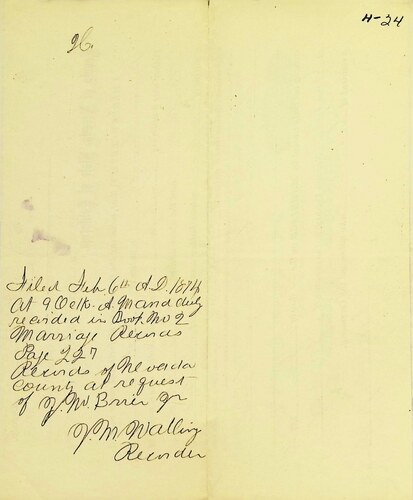 H-24
26.
Filed Feb 6th A.D. 1874
At 9 Oclk. A.M and duly
recorded in Book No 2
Marriage Records
Page 227
Records of Nevada
County at request
of J. W. Brier Jr
J. M Walling
Recorder